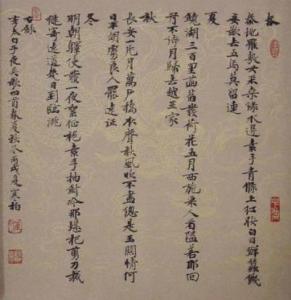 春
秦地羅敷女采桑綠水邊素手青條上紅妝白日鮮蠶饑
妾欲去五馬莫留連
夏
鏡湖三百里菡萏發荷花五月西施采人看隘若耶回
舟不待月歸去越王家
秋
長安一片月萬戶擣衣聲秋風吹不盡總是玉關情何
日平胡虜良人罷遠征
冬
明朝驛使發一夜絮征袍素手抽針冷那堪把剪刀裁
縫寄遠道幾日到臨洮
右錄
李太白子夜吳歌四首春夏秋冬丙戌夏